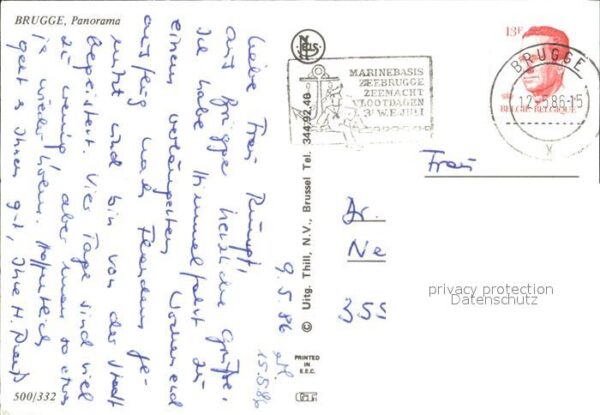 BRUGGE, Panorama
9.5.86
15.5.86
Liebe Frau Rumpf,
aus Brügge herzliche Grüße.
Ich habe Himmelfahrt zu
einem verlängerten Wochenend
ausflug nach Flandern ge-
nutzt und bin von der Stadt
begeistert. Vier Tage sind viel
zu wenig! aber man so etwas
ja wiederholen. Hoffentlich
geht es Ihnen gut, Ihre H.
500/332
© Uitg. Thill, N.V., Brussel Tel. 344.92.40
NELS
PRINTED
IN
E.E.C.
MARINEBASIS
ZEEBRUGGE
ZEEMACHT
VLOOTDAGEN
3° W.E JULI
BRUGGE
12-5.86-15
X
13F
BELGIË-BELGIQUE
Frau
Dr.
Ne
355
privacy protection
Datenschutz